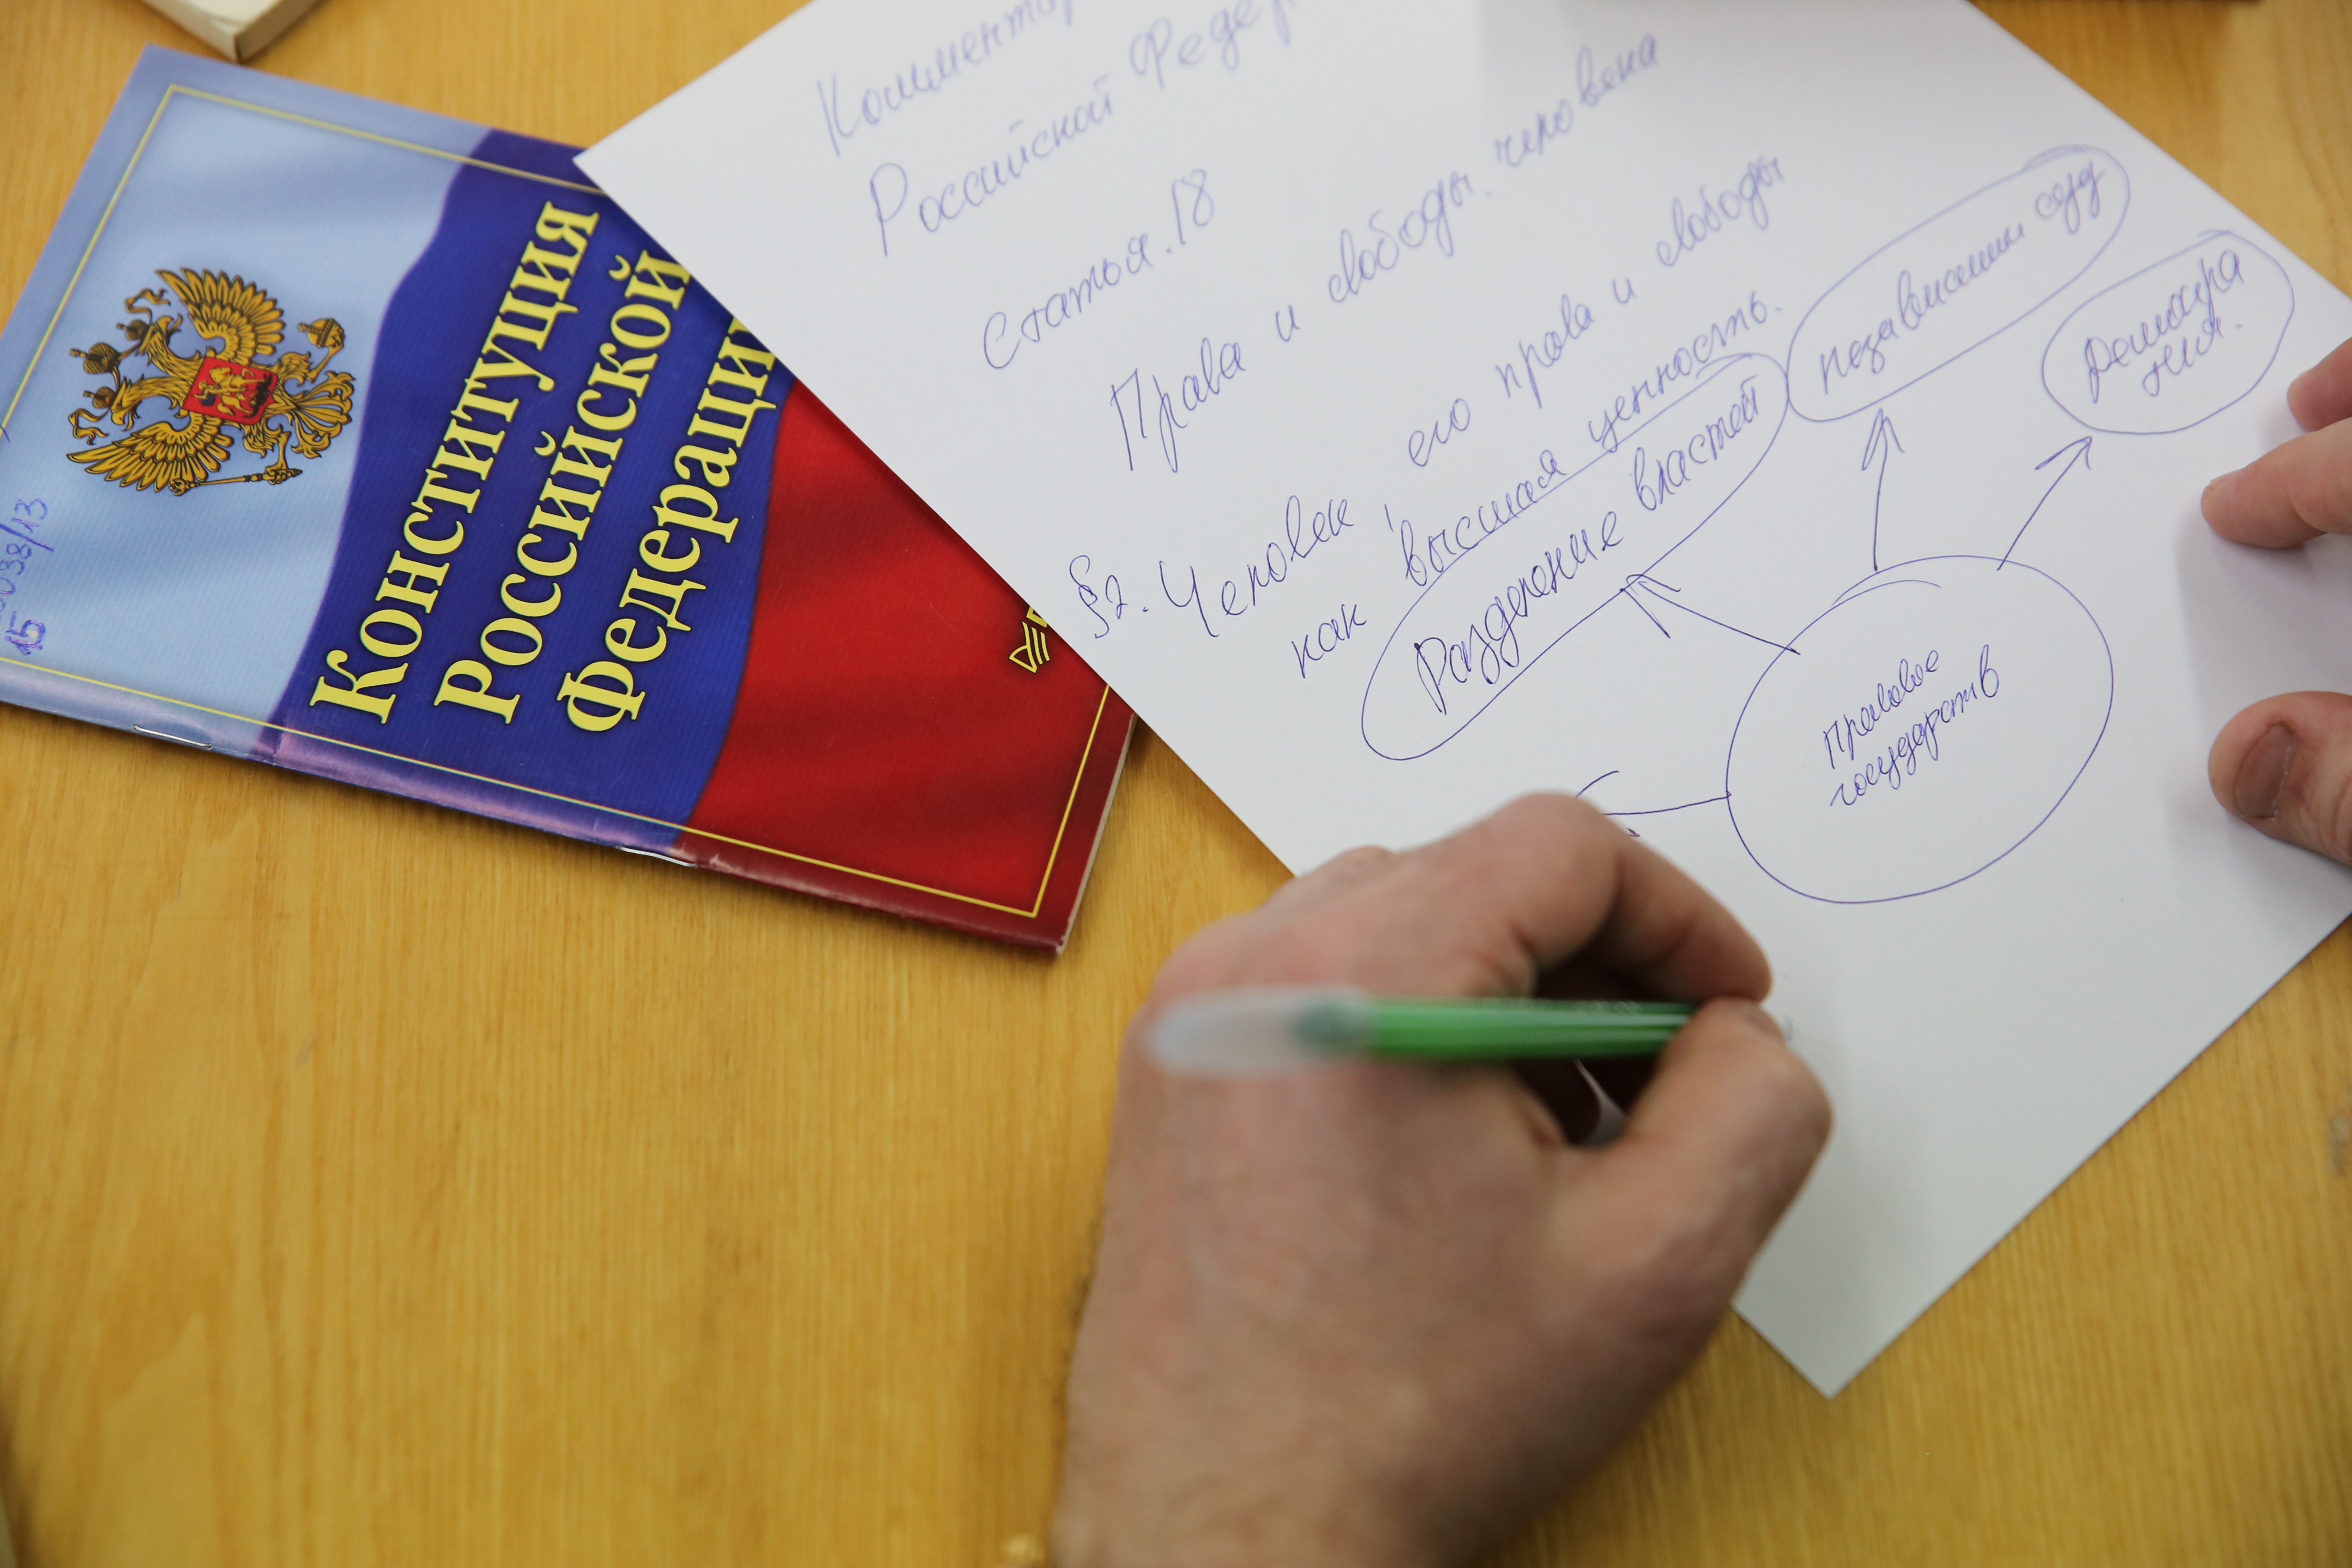 Конституция
Российской
Федерации
Российской
Статья. 18
Права и свободы. человека
§2. Человек, его права и свободы
как высшая ценность.
Разделение властей
независимый суд
Демокра
тия.
Правовое
государств
15